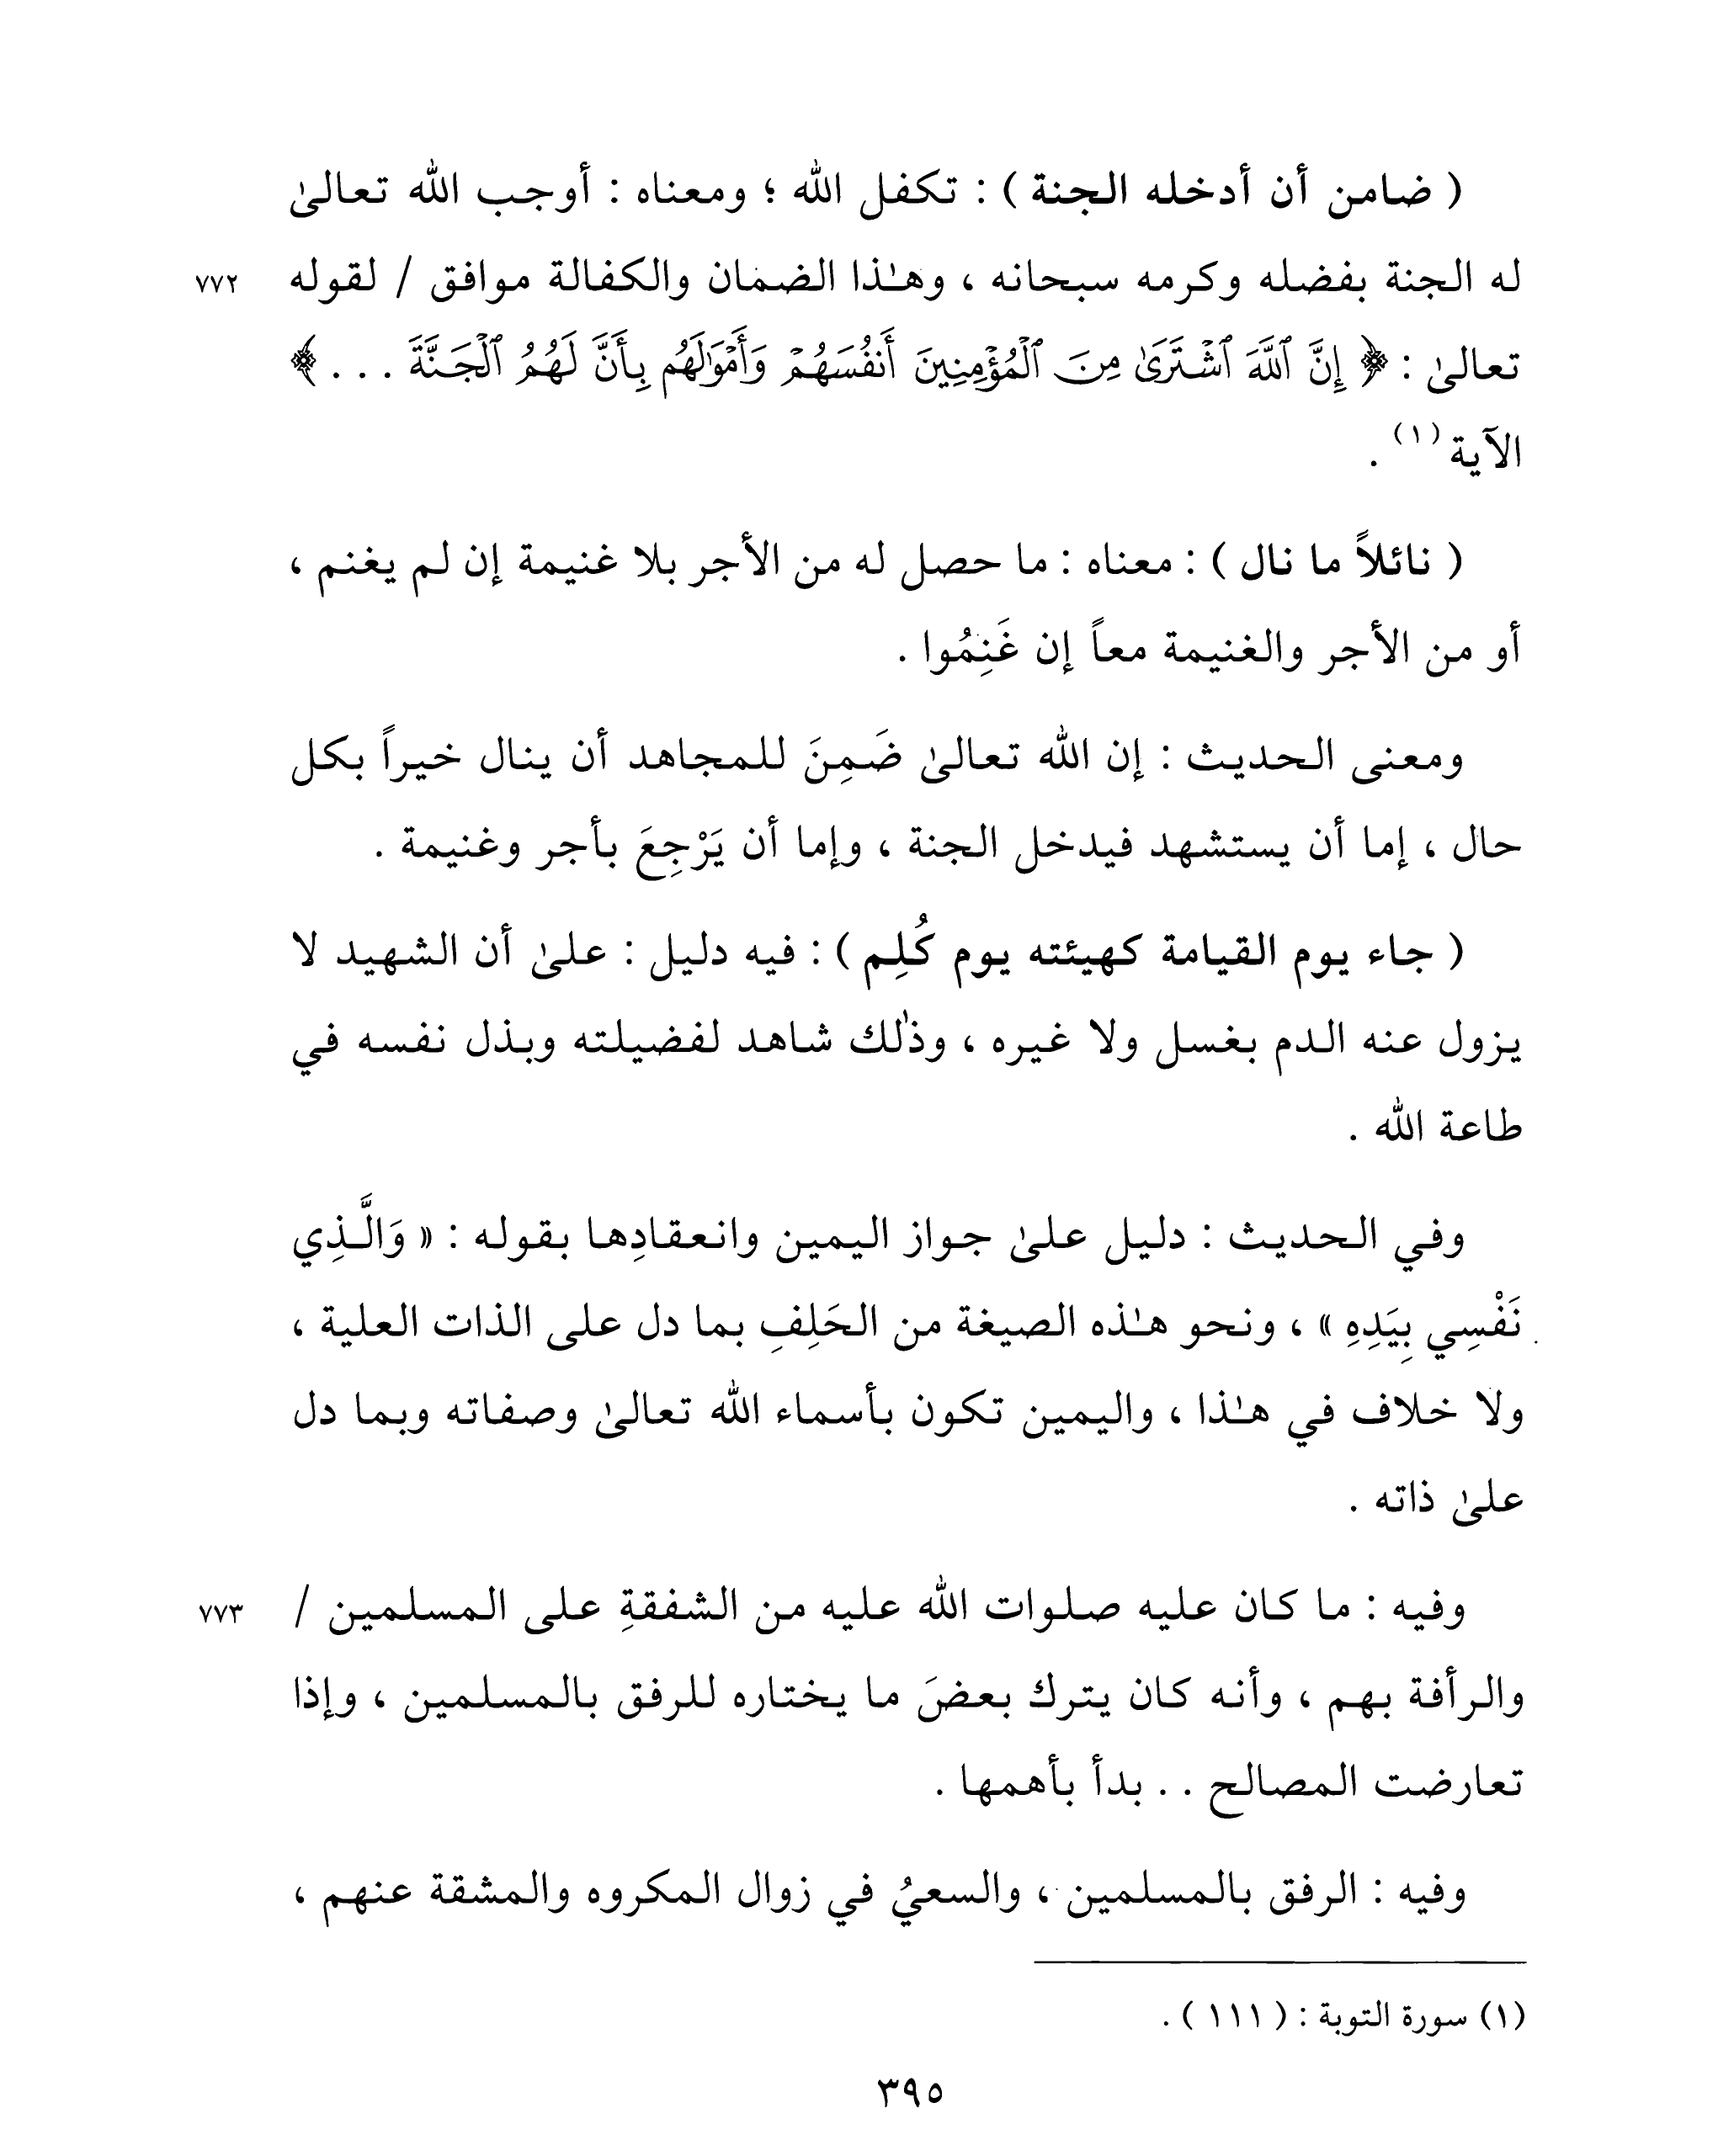 ( ضامن أن أدخله الجنة ) : تكفل الله ؛ ومعناه : أوجب الله تعالىٰ
له الجنة بفضله وكرمه سبحانه ، وهـٰذا الضمان والكفالة موافق / لقوله ٧٧٢
تعالىٰ : ﴿ إِنَّ ٱللَّهَ ٱشْتَرَىٰ مِنَ ٱلْمُؤْمِنِينَ أَنفُسَهُمْ وَأَمْوَٰلَهُم بِأَنَّ لَهُمُ ٱلْجَنَّةَ . . . ﴾
الآية (١) .
( نائلاً ما نال ) : معناه : ما حصل له من الأجر بلا غنيمة إن لم يغنم ،
أو من الأجر والغنيمة معاً إن غَنِمُوا .
ومعنى الحديث : إن الله تعالىٰ ضَمِنَ للمجاهد أن ينال خيراً بكل
حال ، إما أن يستشهد فيدخل الجنة ، وإما أن يَرْجِعَ بأجر وغنيمة .
( جاء يوم القيامة كهيئته يوم كُلِم ) : فيه دليل : علىٰ أن الشهيد لا
يزول عنه الدم بغسل ولا غيره ، وذٰلك شاهد لفضيلته وبذل نفسه في
طاعة الله .
وفي الحديث : دليل علىٰ جواز اليمين وانعقادِها بقوله : « وَالَّذِي
نَفْسِي بِيَدِهِ » ، ونحو هـٰذه الصيغة من الحَلِفِ بما دل على الذات العلية ،
ولا خلاف في هـٰذا ، واليمين تكون بأسماء الله تعالىٰ وصفاته وبما دل
علىٰ ذاته .
وفيه : ما كان عليه صلوات الله عليه من الشفقةِ على المسلمين / ٧٧٣
والرأفة بهم ، وأنه كان يترك بعضَ ما يختاره للرفق بالمسلمين ، وإذا
تعارضت المصالح . . بدأ بأهمها .
وفيه : الرفق بالمسلمين ، والسعيُ في زوال المكروه والمشقة عنهم ،
(١) سورة التوبة : ( ١١١ ) .
٣٩٥